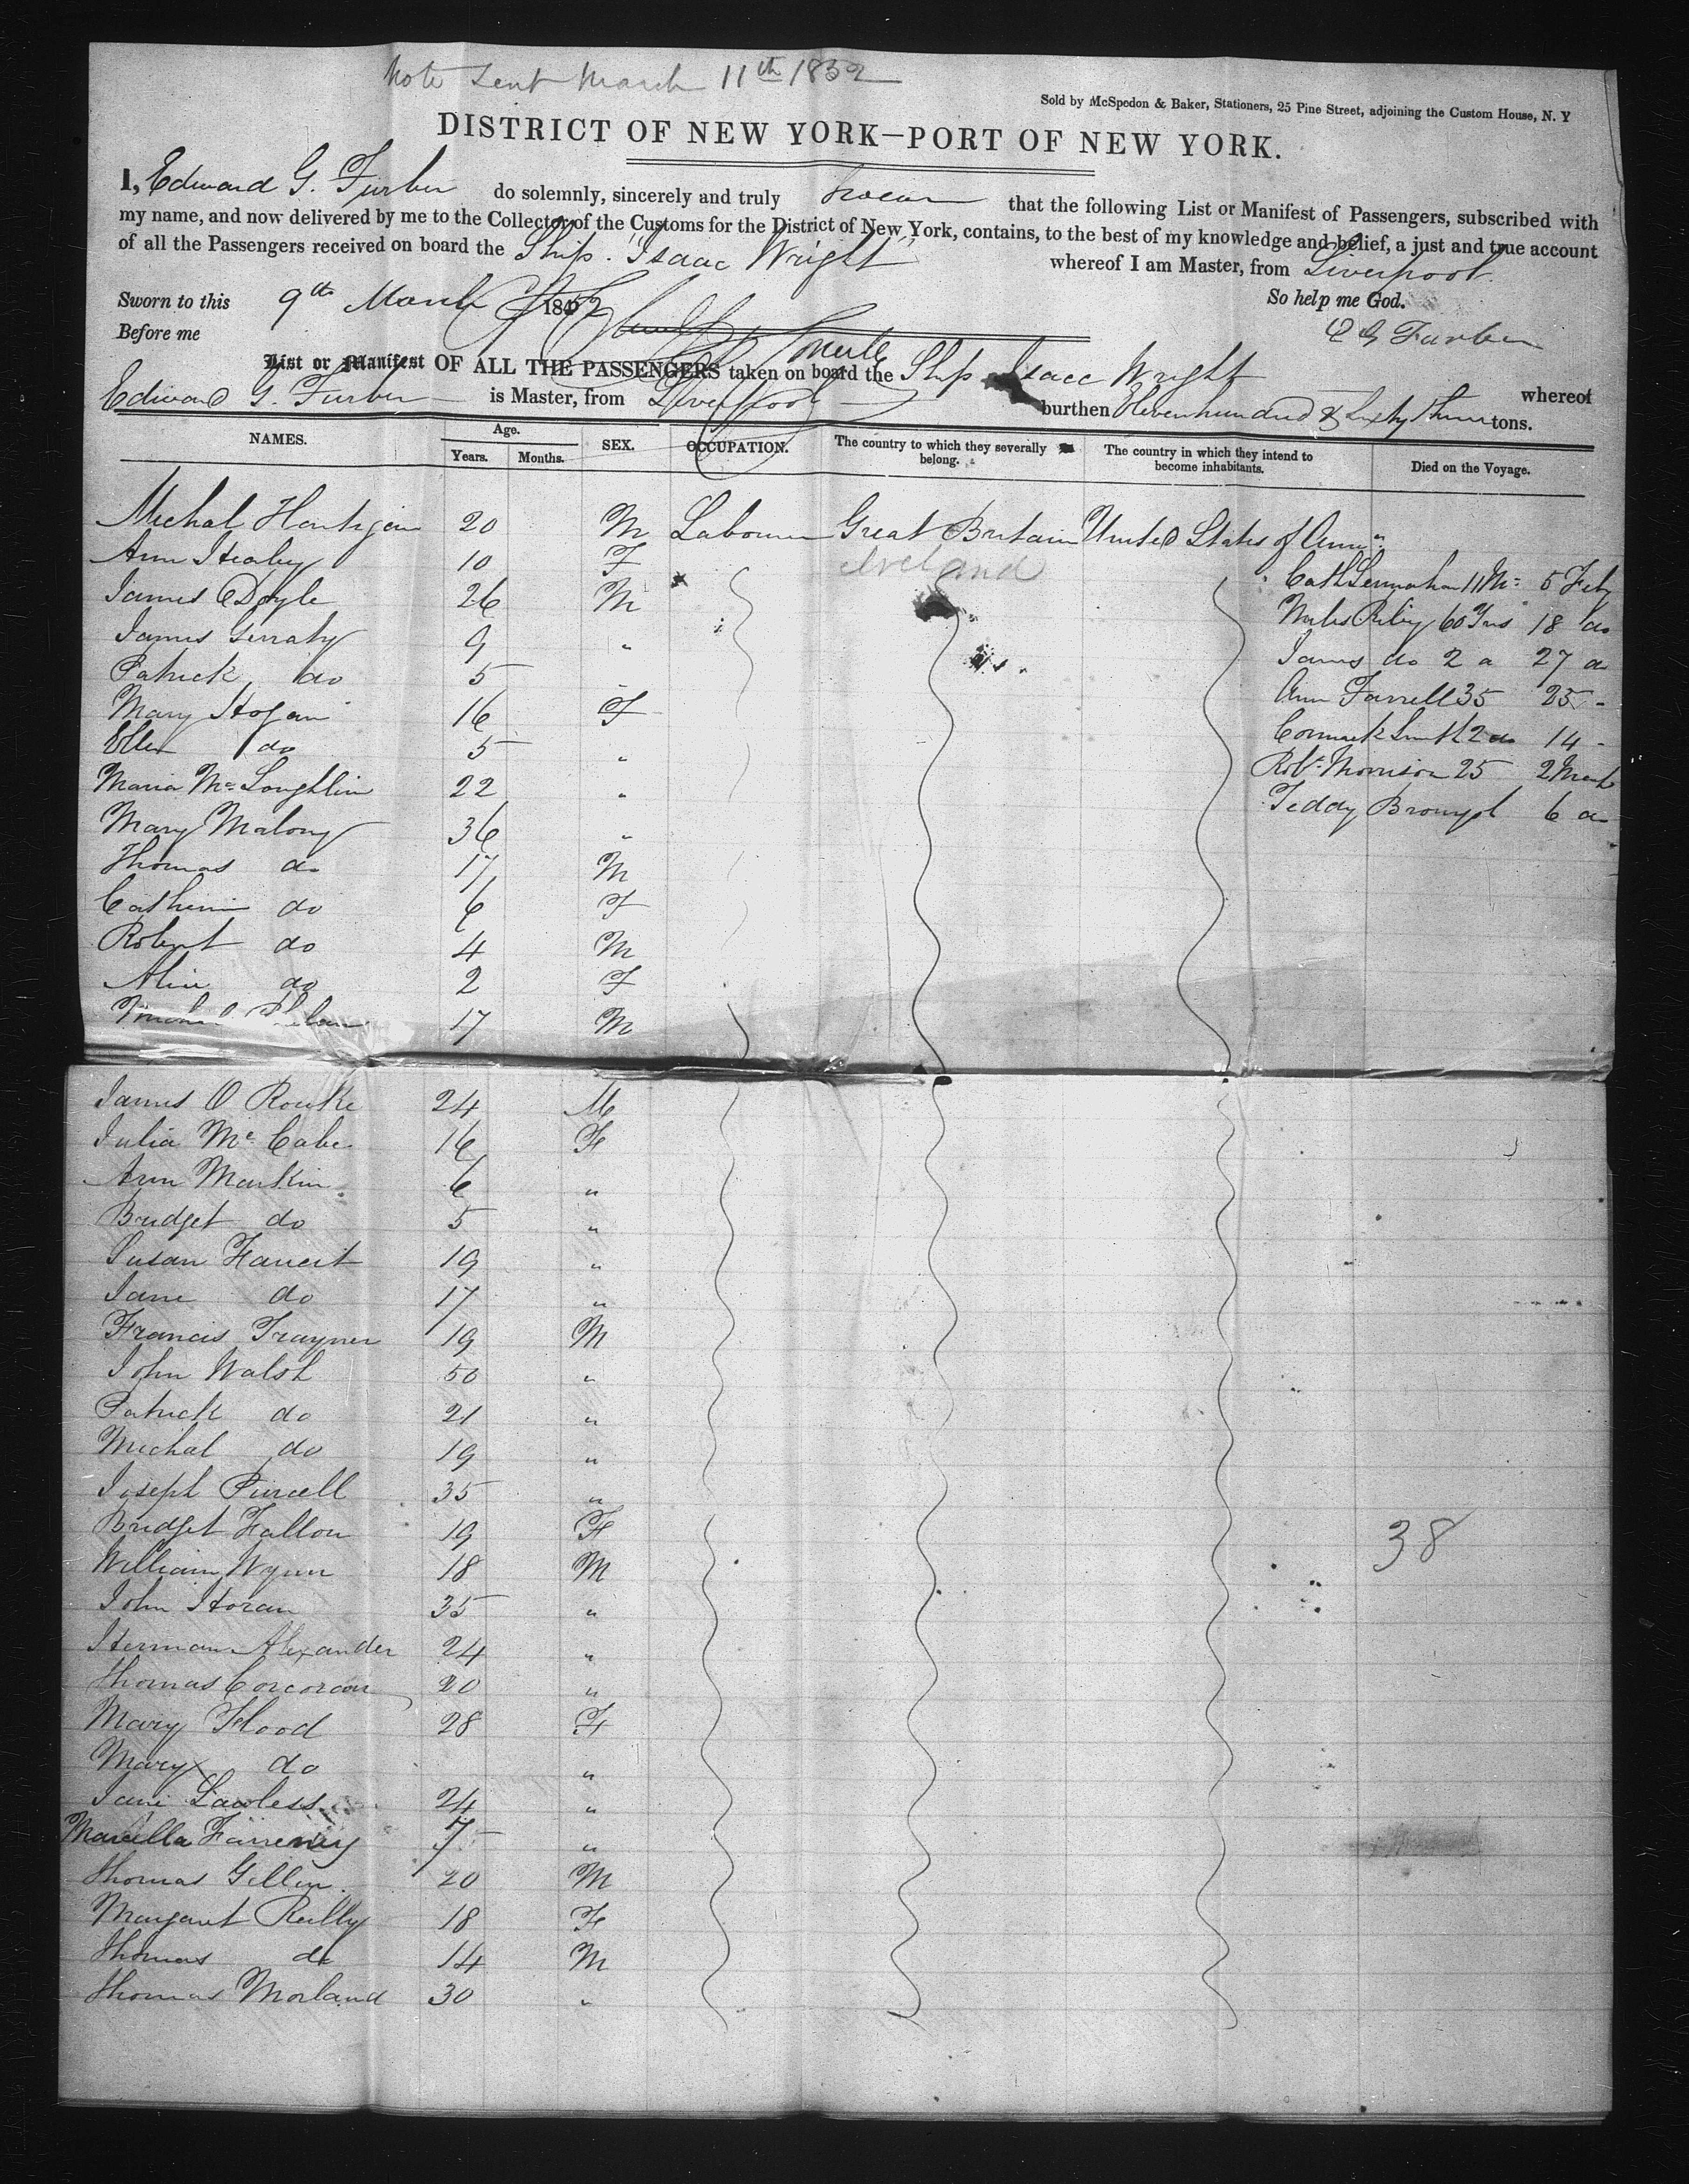 Note Sent March 11th 1852
Sold by McSpedon & Baker, Stationers, 25 Pine Street, adjoining the Custom House, N. Y
DISTRICT OF NEW YORK—PORT OF NEW YORK.
I, Edward G. Furber do solemnly, sincerely and truly swear that the following List or Manifest of Passengers, subscribed with
my name, and now delivered by me to the Collector of the Customs for the District of New York, contains, to the best of my knowledge and belief, a just and true account
of all the Passengers received on board the Ship "Isaac Wright" whereof I am Master, from Liverpool
Sworn to this 9th March 1852 So help me God.
Before me E G Furber
List or Manifest OF ALL THE PASSENGERS taken on board the Ship Isaac Wright whereof
Edward G. Furber is Master, from Liverpool burthen Eleven hundred & Sixty tons.
NAMES. Age. Years. Months. SEX. OCCUPATION. The country to which they severally belong. The country in which they intend to become inhabitants. Died on the Voyage.
Michal Hartigan 20 M Labourer Great Britain United States of Ama
Ann Healey 10 F Ireland
Cath Lennahan 11 Ms 5 Feby
James Doyle 26 M
Riley 60 Yrs 18 do
James Gerraty 9 "
James do 2 27
Patrick do 5
Ann Farrell 35 25 -
Mary Hogan 16 F
Cormack Smith 2 do 14 -
Ellen do 5 "
Robt Morrison 25 2 March
Maria McLoughlin 22 "
Teddy 6
Mary Malony 36 "
Thomas do 17 M
Catherine do 6 F
Robert do 4 M
Alice do 2 F
17 M
James O Rourke 24 M
Julia McCabe 16 F
Ann Markin 6 "
Bridget do 5 "
Susan Faucit 19 "
Jane do 17 "
Francis Trayner 19 M
John Walsh 50 "
Patrick do 21 "
Michal do 19 "
Joseph Purcell 35 "
Bridget Fallon 19 F
38
William Wynn 18 M
John Horan 35 "
Herman Alexander 24 "
Thomas Corcoran 20 "
Mary Flood 28 F
Mary do "
Jane Lawless 24 "
Marcella 7 "
Thomas Gillin 20 M
Margaret Reilly 18 F
Thomas do 14 M
Thomas Morland 30 "